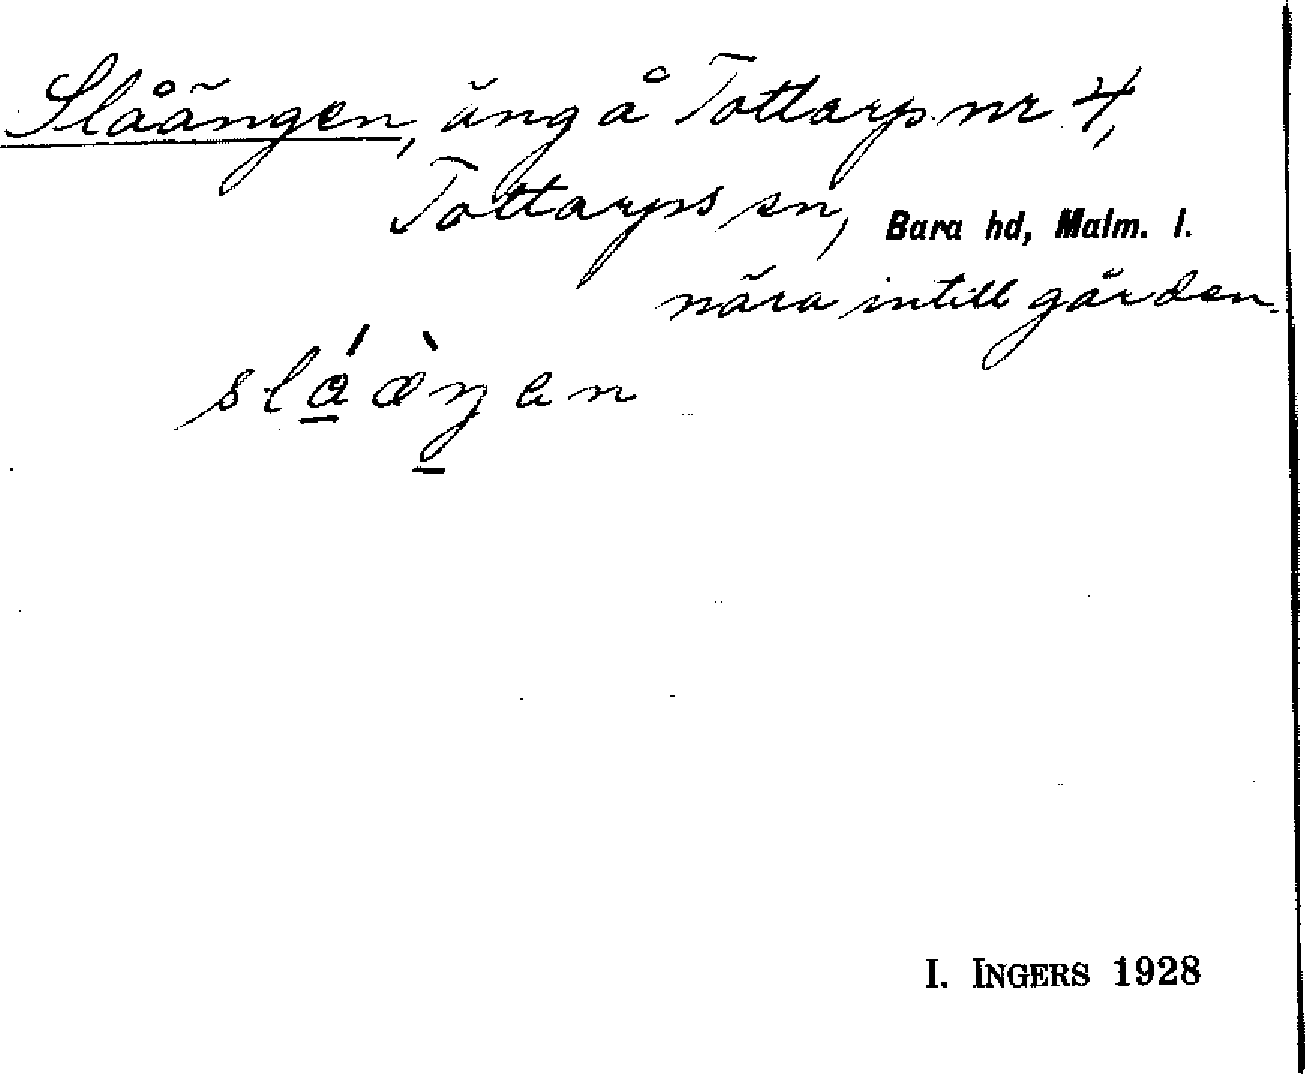 Slåängen, äng å Tottarp nr 4,
Tottarps sn, Bara hd, Malm. l.
nära intill gården.
I. INGERS 1928